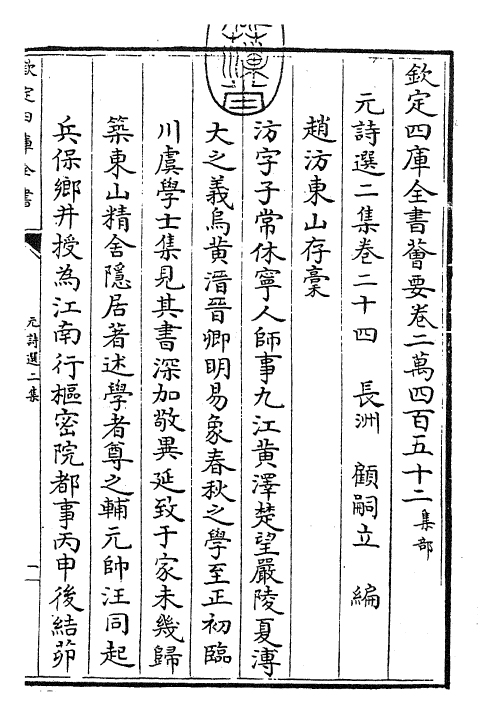 欽定四庫全書薈要卷二萬四百五十二集部
元詩選二集卷二十四　長洲　顧嗣立　編
趙汸東山存稾
汸字子常休寧人師事九江黄澤楚望嚴陵夏溥
大之義烏黄溍晉卿明易象春秋之學至正初臨
川虞學士集見其書深加敬異延致于家未幾歸
築東山精舍隱居著述學者尊之輔元帥汪同起
兵保鄉井授為江南行樞密院都事丙申後結茆
欽定四庫全書
元詩選二集
一